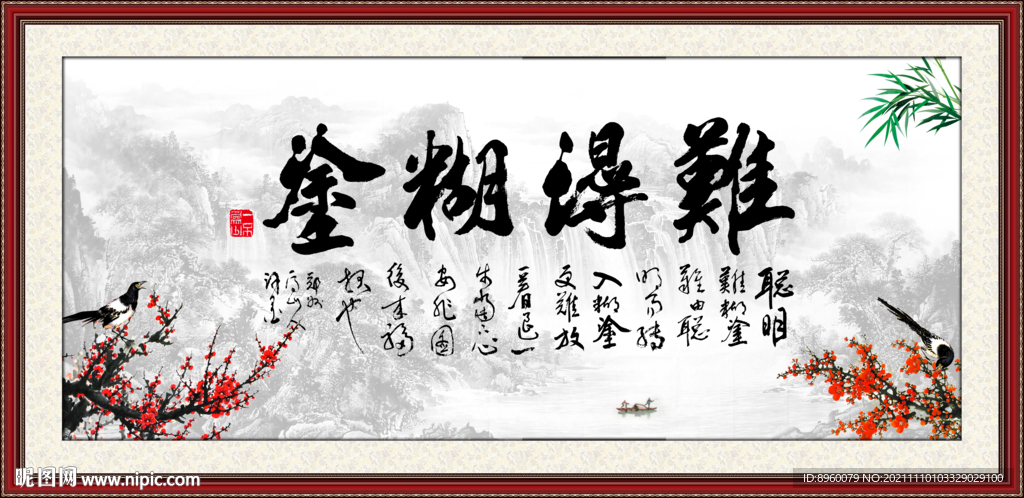 難得糊塗
聰明
難糊塗
難由聰
明而轉
入糊塗
更難放
一著退一
步當下心
安非圖
後來福
報也
昵图网 www.nipic.com
ID:8960079 NO:20211110103329029100